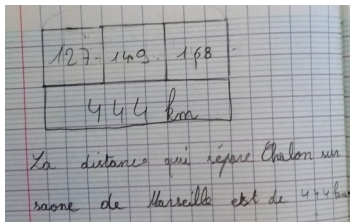 127 149 168
444 km
La distance qui sépare Chalon sur
saone de Marseille est de 444 km